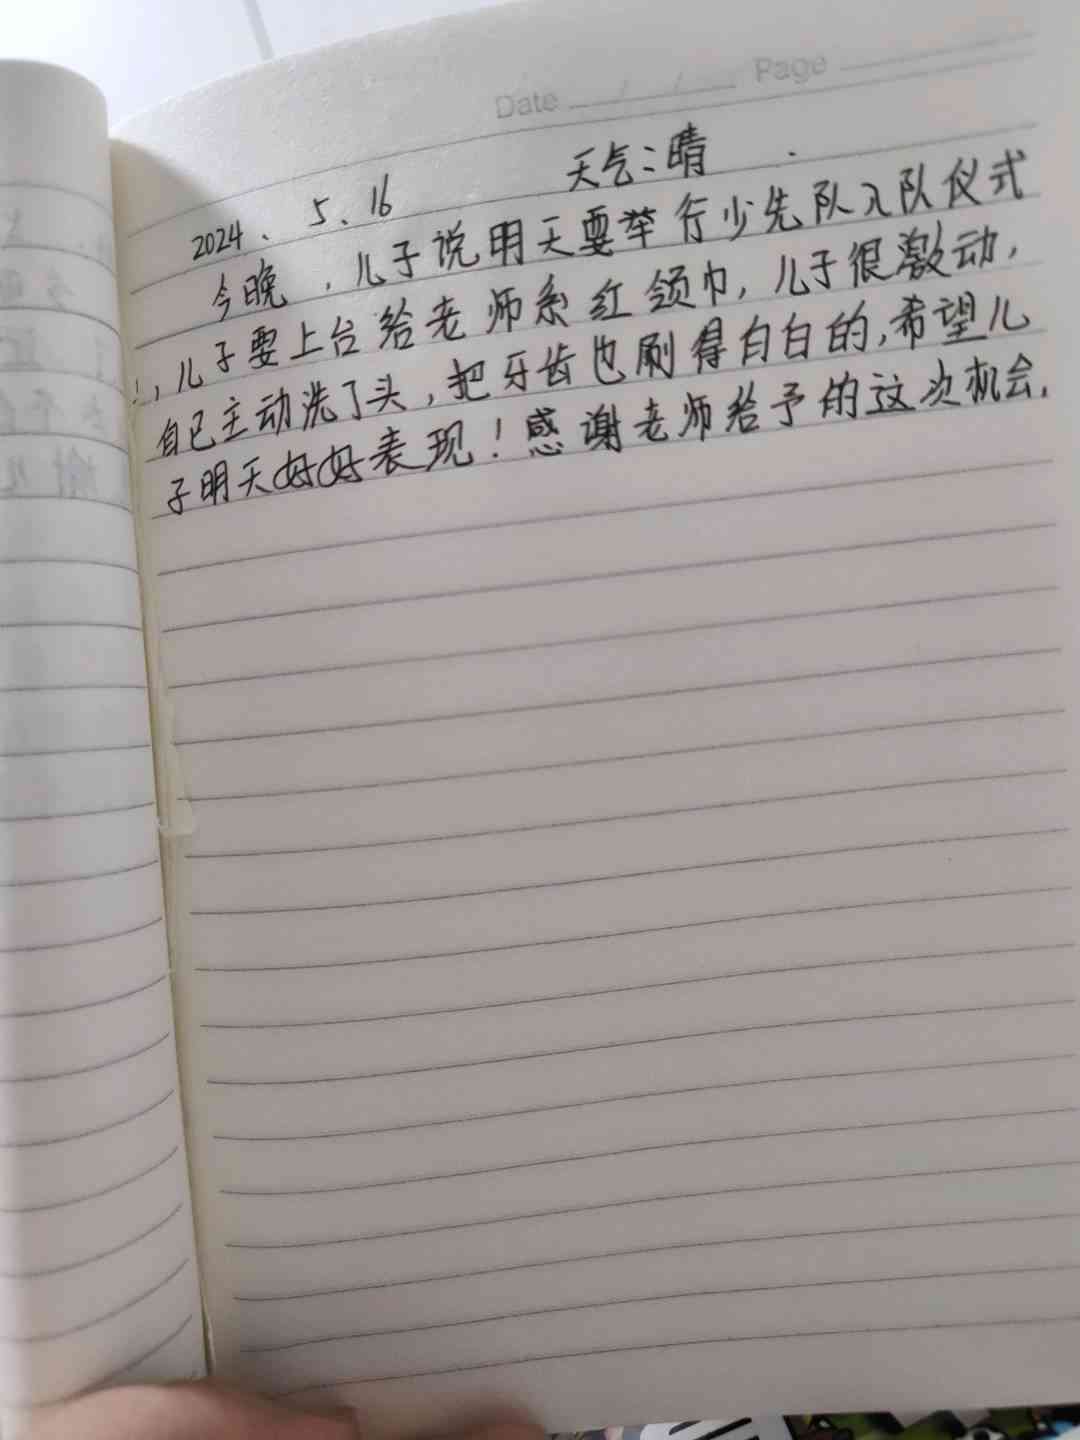 Date __/__/__ Page ____
2024. 5. 16 天气：晴
今晚，儿子说明天要举行少先队入队仪式
，儿子要上台给老师系红领巾，儿子很激动，
自己主动洗了头，把牙齿也刷得白白的，希望儿
子明天好好表现！感谢老师给予的这次机会.